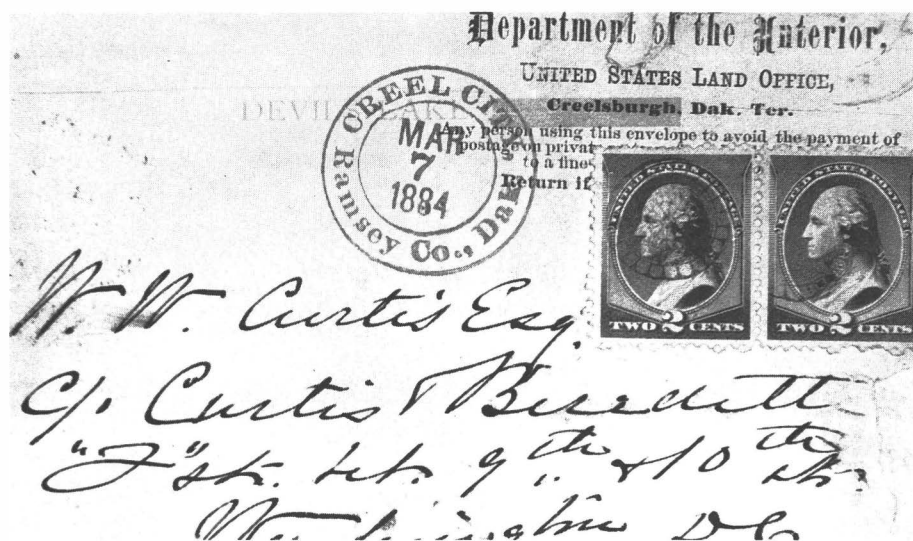 Department of the Interior,
UNITED STATES LAND OFFICE,
Creelsburgh, Dak. Ter.
Any person using this envelope to avoid the payment of
postage on privat
to a fine
Return if
DEVIL LAKE
CREEL CITY
MAR
7
1884
Ramsey Co., Dak.
UNITED STATES POSTAGE
TWO 2 CENTS
UNITED STATES POSTAGE
TWO 2 CENTS
W. W. Curtis Esq.
c/o Curtis & Burdett
"F" st. bet. 9th & 10th st.
Washington DC